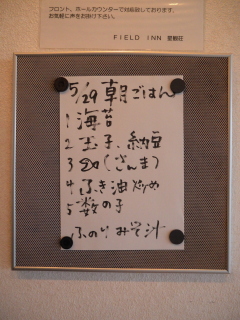 フロント、ホールカウンターで対応致しております。
お気軽に声をお掛け下さい。
FIELD INN 愛観荘
5/29 朝ごはん
1 海苔
2 玉子、納豆
3 魚（さんま）
4 ふき油炒め
5 数の子
ふのりみそ汁